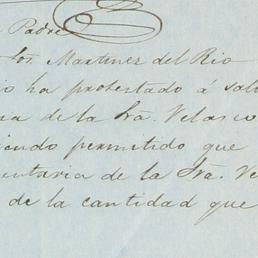 Padre
Sos. Martinez del Rio
io ha protestado á sal
na de la Sra. Velasco
iendo permitido que
mentaria de la Sra. Ve
de la cantidad que